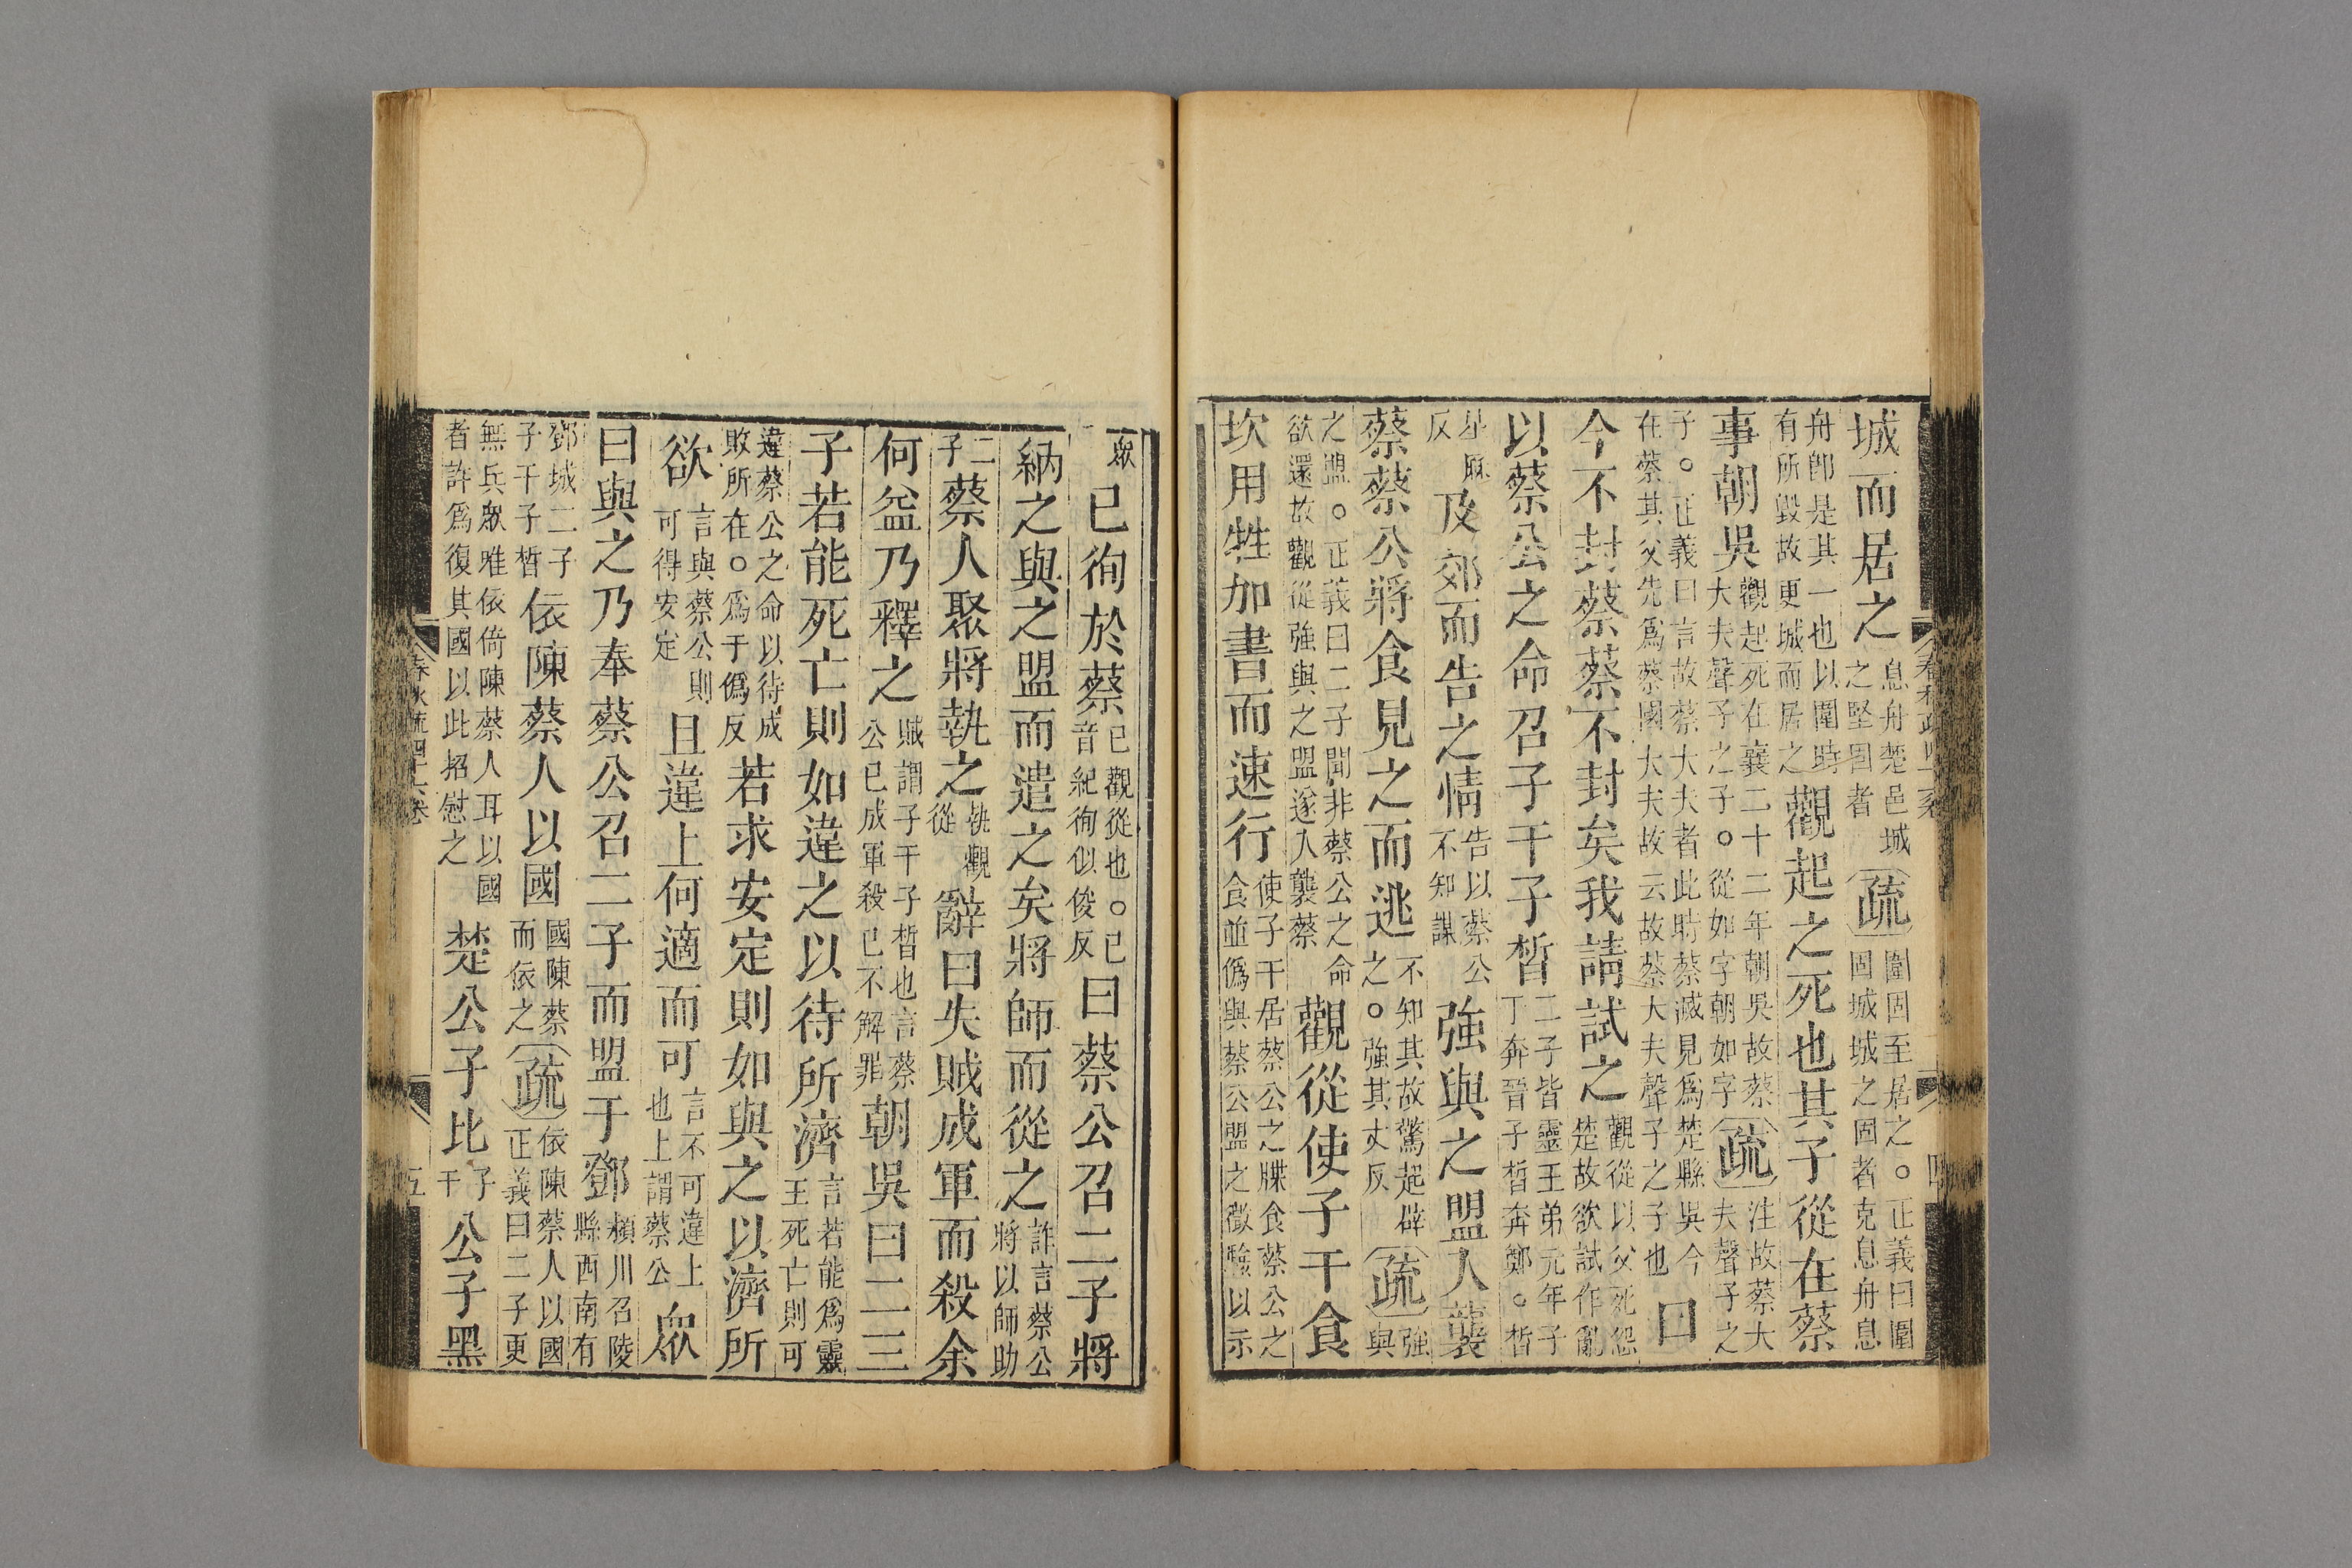 城而居之息舟楚邑城之堅固者疏圍固至居之。正義曰圍固城城之固者克息舟息
舟卽是其一也以圍時有所毀故更城而居之觀起之死也其子從在蔡
事朝吳觀起死在襄二十二年朝吳故蔡大夫聲子之子。從如字朝如字疏注故蔡大夫聲子之
子。正義曰言故蔡大夫者此時蔡滅見爲楚縣吳今在蔡其父先爲蔡國大夫故云故蔡大夫聲子之子也曰
今不封蔡蔡不封矣我請試之觀從以父死怨楚故欲試作亂
以蔡公之命召子干子晳二子皆靈王弟元年子丁奔晉子晳奔鄭。晳
星厤反及郊而告之情告以蔡公不知謀強與之盟入襲
蔡蔡公將食見之而逃不知其故驚起辟之。強其丈反疏強與
之盟。正義曰二子聞非蔡公之命欲還故觀從強與之盟遂入襲蔡觀從使子干食
坎用牲加書而速行使子干居蔡公之牒食蔡公之食並僞與蔡公盟之徵驗以示
衆已徇於蔡已觀從也。已音紀徇似俊反曰蔡公召二子將
納之與之盟而遣之矣將師而從之詐言蔡公將以師助
二子蔡人聚將執之執觀從辭曰失賊成軍而殺余
何益乃釋之賊謂子干子晳也言蔡公已成軍殺已不解罪朝吳曰二三
子若能死亡則如違之以待所濟言若能爲靈王死亡則可
違蔡公之命以待成敗所在。爲于僞反若求安定則如與之以濟所
欲言與蔡公則可得安定且違上何適而可言不可違上也上謂蔡公衆
曰與之乃奉蔡公召二子而盟于鄧潁川召陵縣西南有
鄧城二子子干子晳依陳蔡人以國國陳蔡而依之疏依陳蔡人以國正義曰二子更
無兵衆唯依倚陳蔡人耳以國者許爲復其國以此招慰之楚公子比子干公子黑
春秋疏四十六卷
五